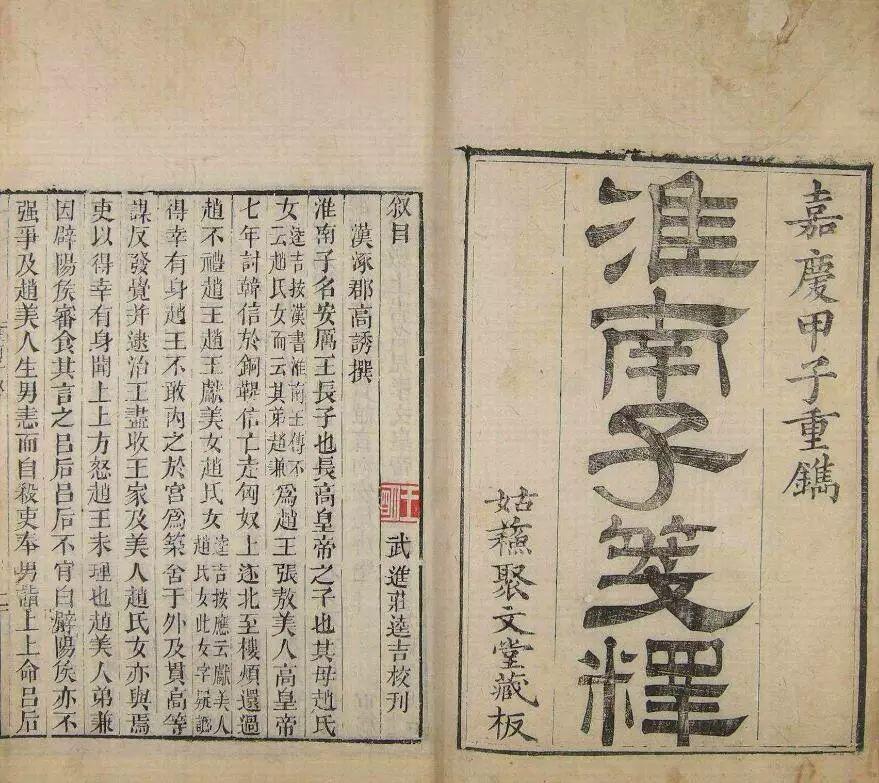 嘉慶甲子重鐫
淮南子箋釋
姑蘓聚文堂藏板
叙目
漢涿郡高誘撰
武進莊逵吉校刊
淮南子名安厲王長子也長高皇帝之子也其母趙氏
女逵吉按漢書淮南王傳不云趙氏女而云其弟趙兼爲趙王張敖美人高皇帝
七年討韓信於銅鞮信亡走匈奴上遂北至樓煩還過
趙不禮趙王趙王獻美女趙氏女逵吉按應云獻美人趙氏女此女字疑譌
得幸有身趙王不敢內之於宮爲築舍于外及貫高等
謀反發覺并逮治王盡收王家及美人趙氏女亦與焉
吏以得幸有身聞上上方怒趙王未理也趙美人弟兼
因辟陽矦審食其言之呂后呂后不肯白辟陽矦亦不
强爭及趙美人生男恚而自殺吏奉男詣上上命呂后